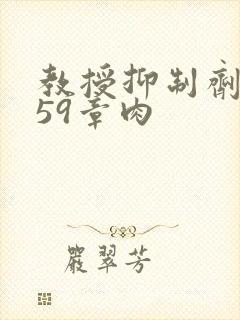 教授抑制剂
59章肉
严翠芳